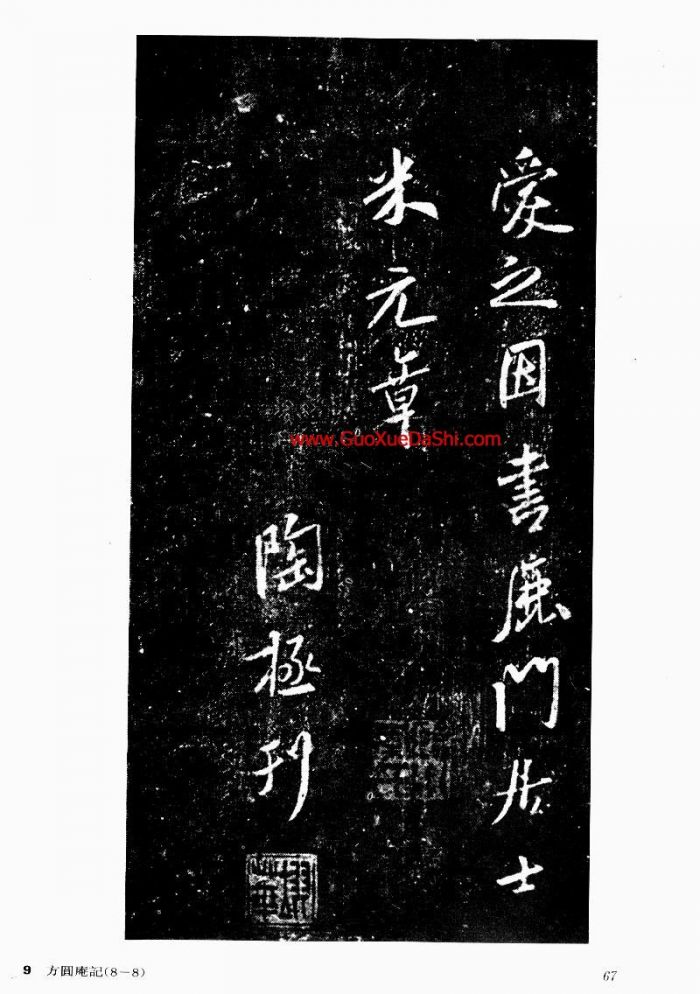 愛之因書鹿門居士
米元章
陶拯刊
www.GuoXueDaShi.com
9 方圓庵記(8－8)
67